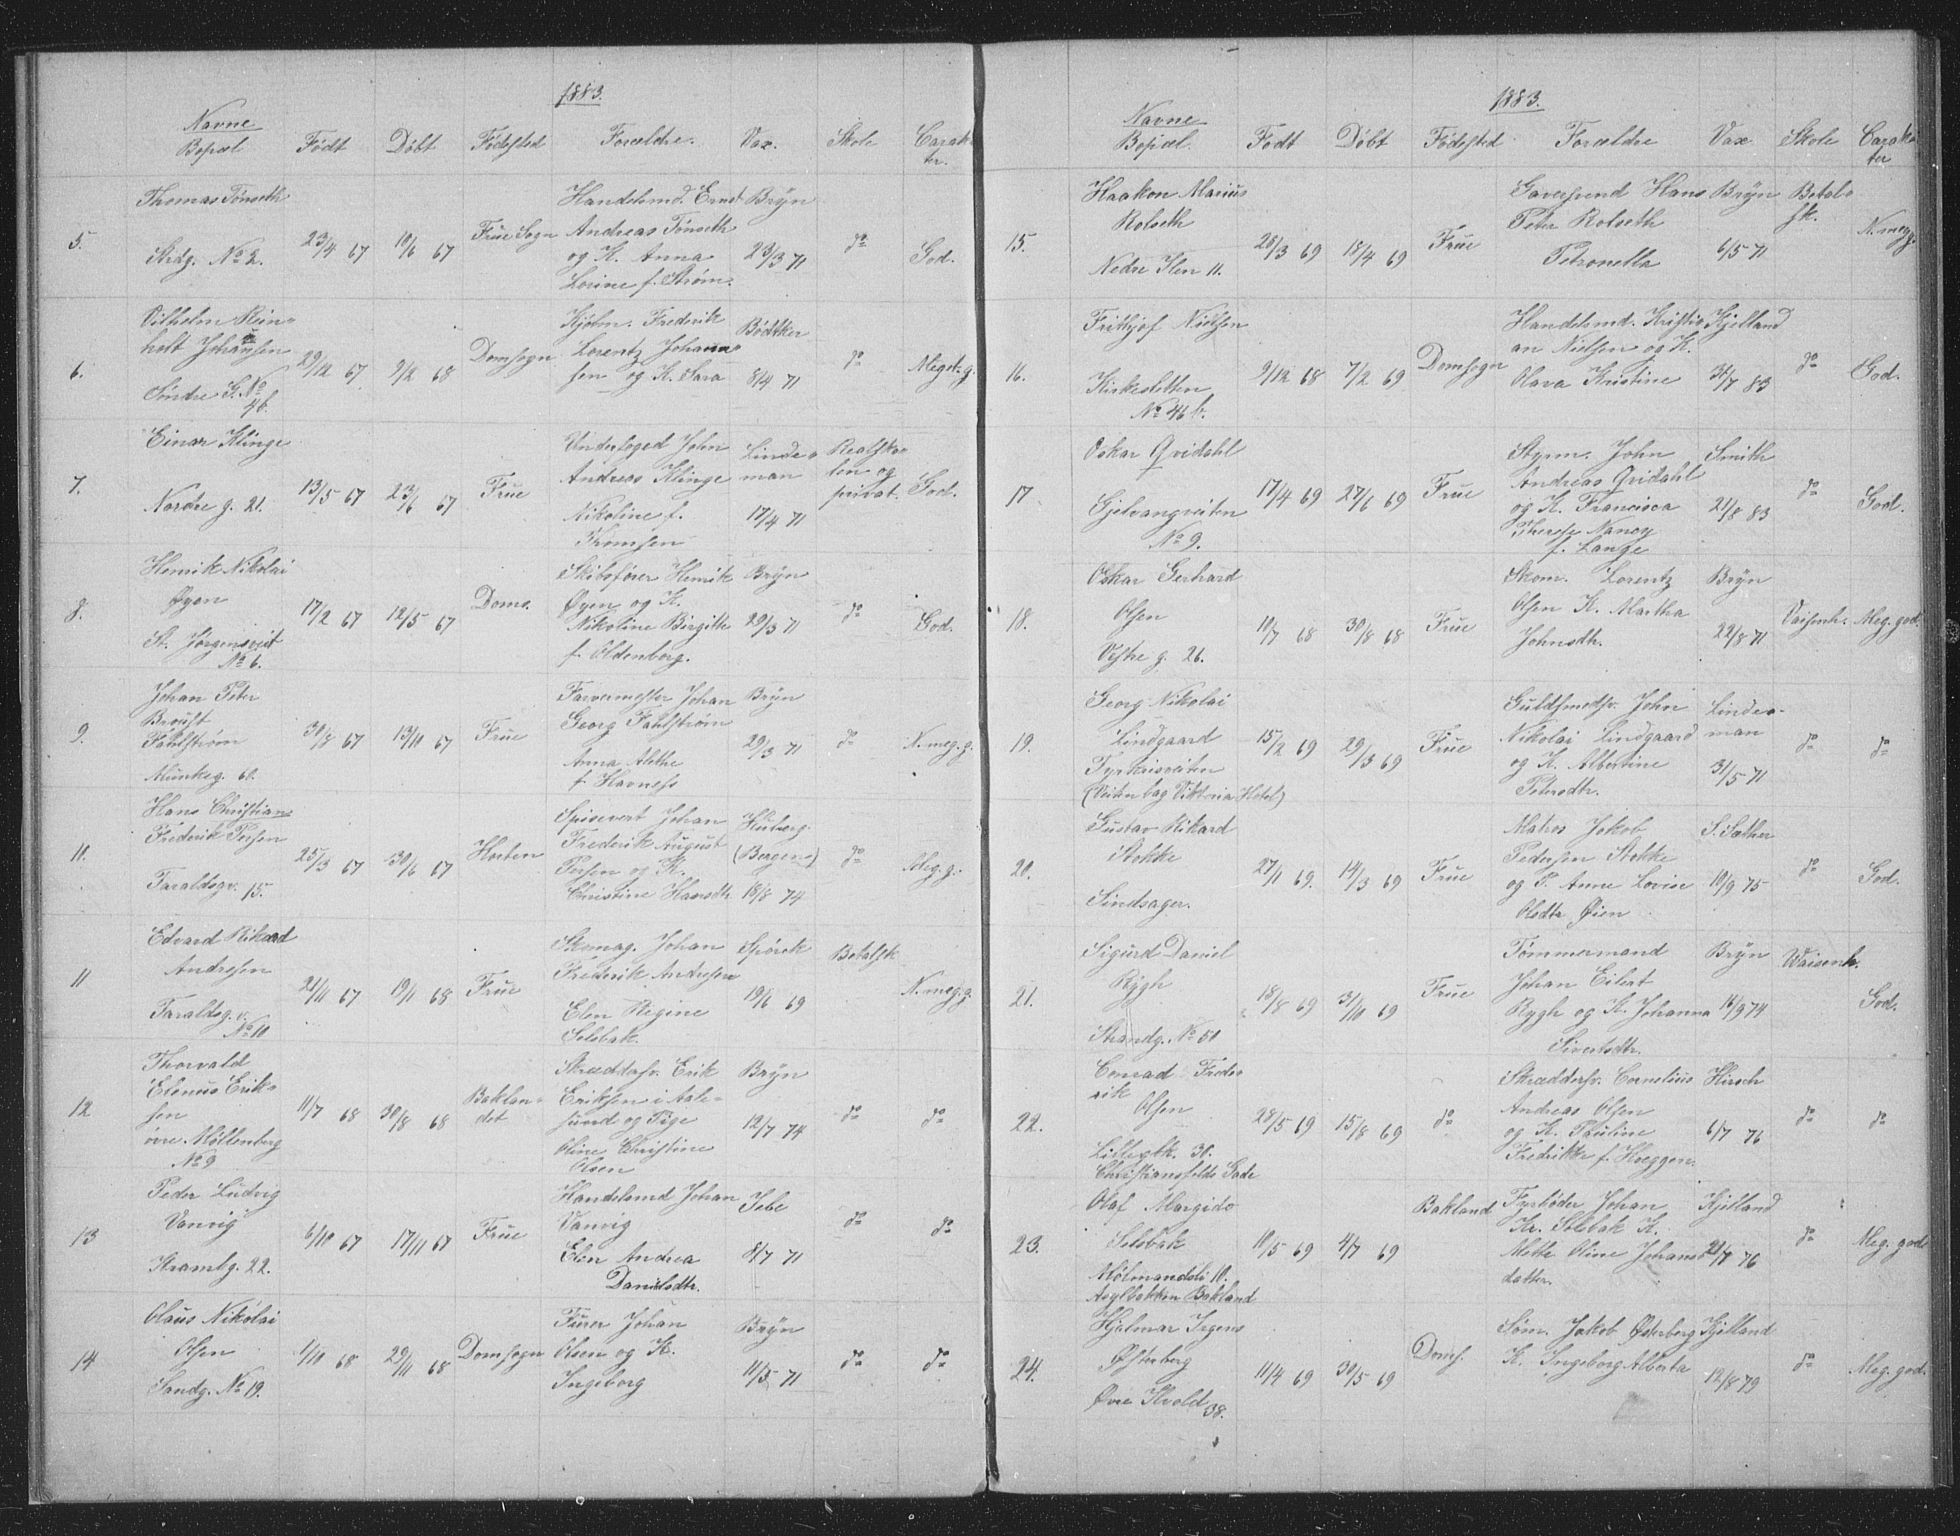 1883.
Navne
Bopæl Født Døbt Fødested Forældre. Vax. Skole Carak-
ter.
5.
Thomas Tønseth
Strdg. No 2.
23/4 67 10/6 67 Frue Sogn
Handelsmd. Ernst
Andreas Tønseth
og K. Anna
Lorine f. Strøm.
Bryn
23/3 71
do
God.
6.
Vilhelm Rein-
holt Johansen
Søndre G. No
4b.
29/12 67 9/2 68 Domsogn
Kjøbm. Frederik
Lorentz Johann-
sen og K. Sara
Bødtker
8/4 71
do
Meget g.
7.
Einar Klinge
Nordre g. 21.
13/5 67 23/6 67 Frue
Underfoged John
Andreas Klinge
Nikoline f.
Thomsen
Linde-
man
17/4 71
Realsko-
len og
privat.
God.
8.
Henrik Nikolai
Øyen
St. Jørgensveit
No 6.
17/2 67 12/5 67 Doms.
Skibsfører Henrik
Øyen og K.
Nikoline Birgitte
f. Oldenborg.
Bryn
29/3 71
do
God.
9.
Johan Peter
Broust
Fahlstrøm
Munkeg. 61.
30/8 67 13/10 67 Frue
Farvermester Johan
Georg Fahlstrøm
Anna Alethe
f. Havness
Bryn
29/3 71
do
N. meg. g.
10.
Hans Christian
Frederik Persen
Taraldsgv. 15.
25/3 67 30/6 67 Horten
Spisevert Johan
Frederik August
Persen og K.
Christine Hansdtr
(Bergen)
18/8 74
do
Meg. g.
11
Edvard Rikard
Andresen
Taraldsg. v.
No 10
21/11 67 19/1 68 Frue
Skomag. Johan
Frederik Andresen
Elen Regine
Solsbak.
Spørck
19/6 69
Betalsk
N. meg. g.
12
Thorvald
Elenus Erik-
sen
øvre Møllenberg
No 9
11/7 68 30/8 68 Baklan-
det
Skræddersv. Erik
Eriksen i Aale-
sund og Pige
Oline Christine
Olsen
Bryn
12/7 74
do
do
13
Peder Ludvig
Vanvig
Krambg. 22.
6/10 67 17/11 67 Frue
Handelsmd Johan
Vanvig
Elen Andrea
Danielsdtr.
Jebe
8/7 71
do
do
14
Olaus Nikolai
Olsen
Sandg. No 19.
1/10 68 29/11 68 Domsogn
Furer Johan
Olsen og K.
Ingeborg
Bryn
11/5 71
do
do
1883.
Navne
Bopæl. Født Døbt Fødested Forældre Vax Skole Carak-
ter
15.
Haakon Marius
Rolseth
Nedre Ilen 11.
20/3 69 18/4 69 Frue
Garversvend Hans
Peter Rolseth
Petronella
Bryn
6/5 71
Betal-
sk.
N. meg g.
16.
Frithjof Nielsen
Kirkesletten
No 46 b.
9/12 68 7/2 69 Domsogn
Handelsmd. Kristi-
an Nielsen og K.
Olava Kristine
Kjelland
31/7 83
do
God.
17
Oskar Qvidahl
Gjelvangveiten
No 9.
17/4 69 27/6 69 Frue
Styrm. John
Andreas Qvidahl
og K. Francisca
Therese Nancy
f. Lange
Smith
21/8 83
do
God.
18.
Oskar Gerhard
Olsen
Vestre g. 26.
10/7 68 30/8 68 Frue
Skom. Lorentz
Olsen K. Martha
Johnsdtr.
Bryn
22/8 71
Vaisenh. Meg. god.
19.
Georg Nikolai
Lindgaard
Tyrkrisveiten
(Veiten bag Viktoria Hotel)
15/2 69 29/3 69 Frue
Guldsmedsv. John
Nikolai Lindgaard
og K. Albertine
Petersdtr.
Linde-
man
31/5 71
do
do
20.
Gustav Rikard
Stokke
Sindsager.
27/1 69. 14/3 69 Frue
Matros Jakob
Pedersen Stokke
og P. Anne Lovise
Olsdtr Øien
S. Sæther
10/9 75
do
God.
21.
Sigurd Daniel
Rygh
Strandg. No 51
18/8 69 31/10 69 Frue
Tømmermand
Johan Eilert
Rygh og K. Johanna
Sivertsdtr.
Bryn
16/9 74
Waisenh.
God.
22.
Conrad Frede-
rik
Olsen
Lillegbk. 30.
Christiansfelds Gade
28/5 69 15/8 69 do
Skræddersv. Cornelius
Andreas Olsen
og K. Pauline
Fredrikke f. Hæggen.
Hirsch
6/7 76
do
do
23.
Olaf Margido
Solsbak
Mølmandsli 10.
Asylbakken Bakland
10/5 69 4/7 69 Bakland
Fyrbøder Johan
Kr. Solsbak K.
Mette Oline Johans-
datter.
Kjelland
21/7 76
do
Meg. god
24.
Hjalmar Irgens
Østerberg
Øvre Ilvold 38.
11/4 69 30/5 69 Doms.
Søm. Jakob Østerberg
K. Ingeborg Alberta
Kjelland
12/8 79
do
Meg. god.